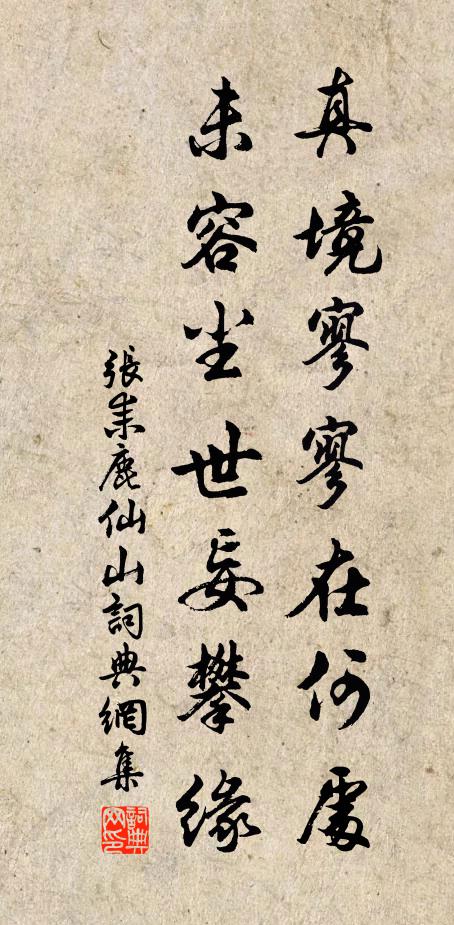 真境寥寥在何處
未容尘世妄攀緣
張耒鹿仙山詞典網集
詞典网印